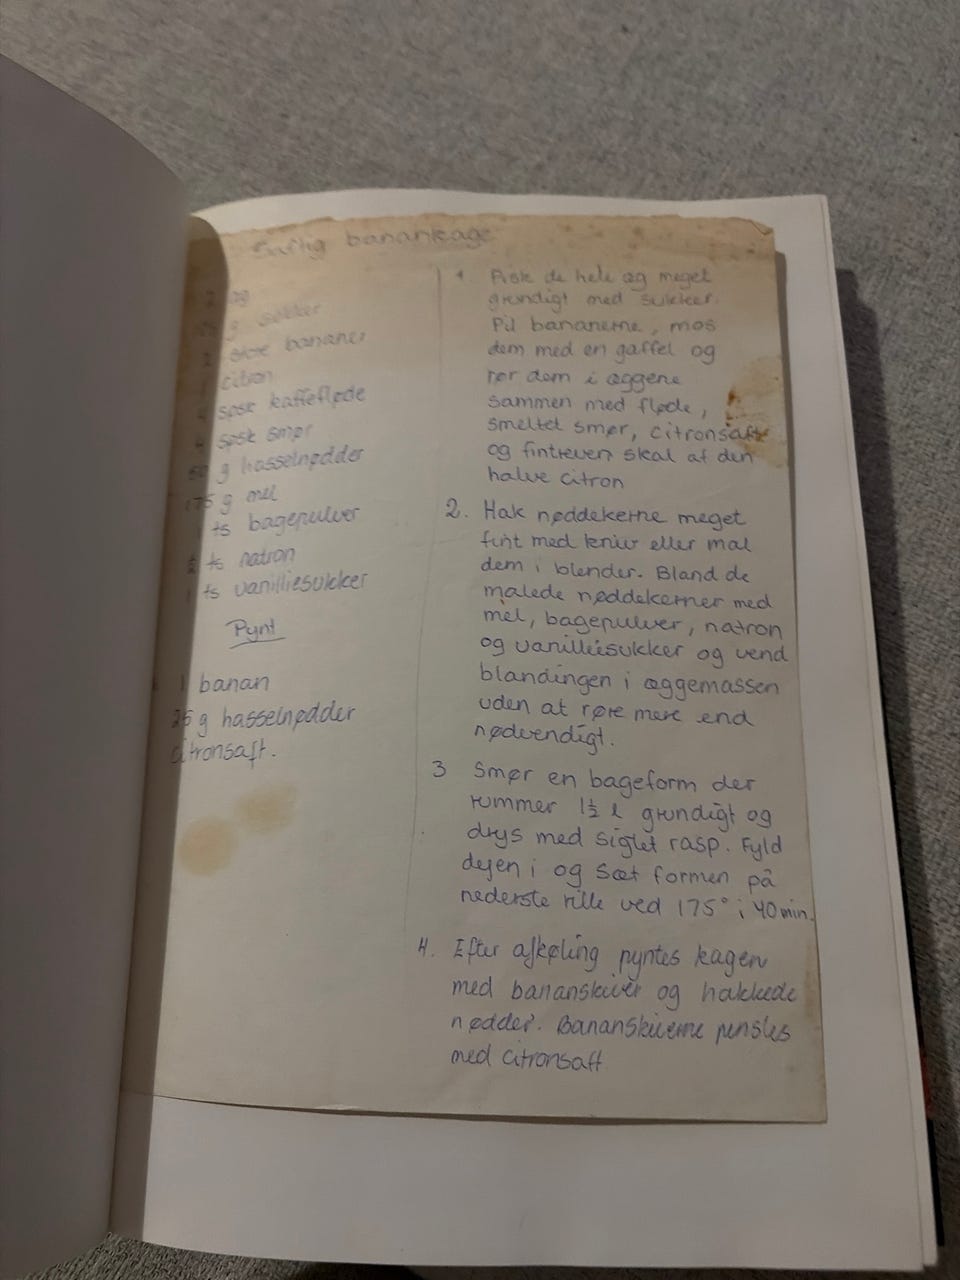 Saftig banankage
2 æg
g sukker
2 store bananer
citron
4 spsk kaffefløde
4 spsk smør
50 g hasselnødder
175 g mel
1 ts bagepulver
½ ts natron
1 ts vanilliesukker
Pynt
1 banan
25 g hasselnødder
citronsaft.
1 Pisk de hele æg meget
grundigt med sukker.
Pil bananerne, mos
dem med en gaffel og
rør dem i æggene
sammen med fløde,
smeltet smør, citronsaft
og fintreven skal af den
halve citron
2. Hak nøddekerne meget
fint med kniv eller mal
dem i blender. Bland de
malede nøddekerner med
mel, bagepulver, natron
og vanilliesukker og vend
blandingen i æggemassen
uden at røre mere end
nødvendigt.
3 Smør en bageform der
rummer 1½ l grundigt og
drys med sigtet rasp. Fyld
dejen i og sæt formen på
nederste rille ved 175° i 40 min.
4. Efter afkøling pyntes kagen
med bananskiver og hakkede
nødder. Bananskiverne pensles
med citronsaft